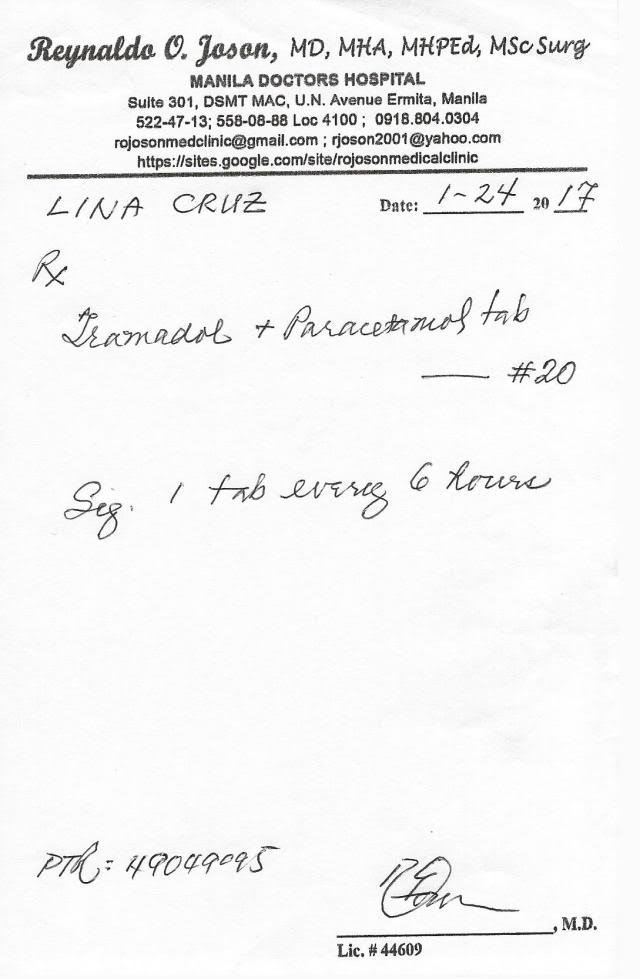 Reynaldo O. Joson, MD, MHA, MHPEd, MSc Surg
MANILA DOCTORS HOSPITAL
Suite 301, DSMT MAC, U.N. Avenue Ermita, Manila
522-47-13; 558-08-88 Loc 4100 ; 0918.804.0304
rojosonmedclinic@gmail.com ; rjoson2001@yahoo.com
https://sites.google.com/site/rojosonmedicalclinic
LINA CRUZ Date: 1-24 2017
Rx
Tramadol + Paracetamol tab
— #20
Sig. 1 tab every 6 hours
PTR: 49049095
, M.D.
Lic. # 44609